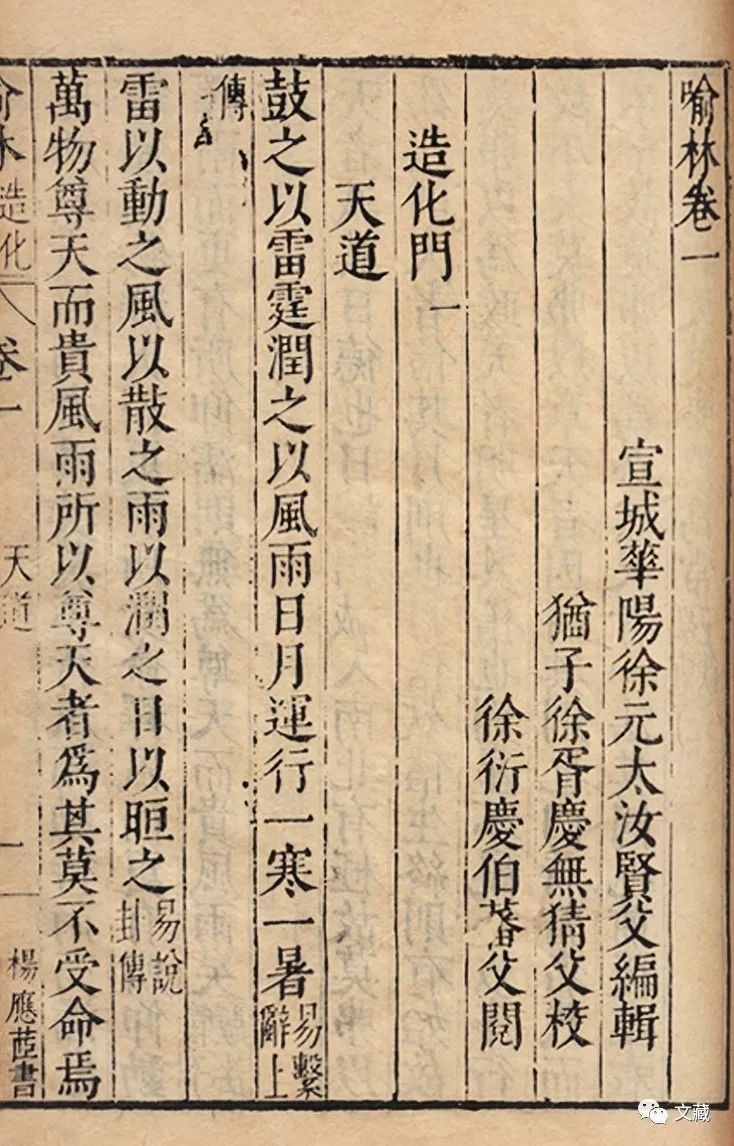 喻林卷一
宣城華陽徐元太汝賢父編輯
猶子徐胥慶無猜父校
徐衍慶伯蕃父閱
造化門一
天道
鼓之以雷霆潤之以風雨日月運行一寒一暑易繫辭上
傳
雷以動之風以散之雨以潤之日以晅之易說卦傳
萬物尊天而貴風雨所以尊天者爲其莫不受命焉
喻林造化 卷一 天道 一 楊應蒞書
文藏